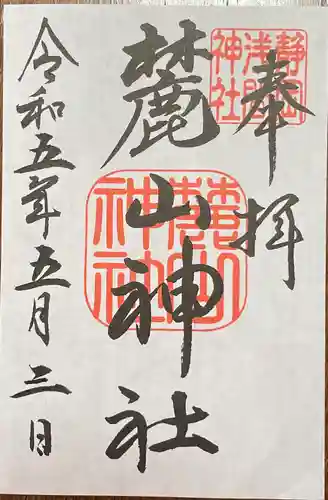 奉拝
静岡浅間神社
麓山神社
麓山神社
令和五年五月三日